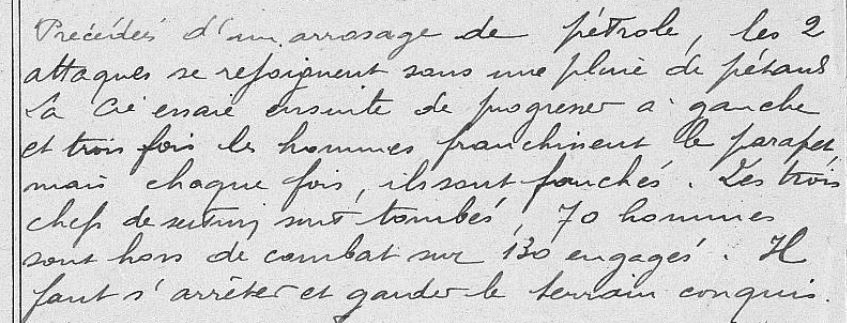 Précédées d'un arrosage de pétrole, les 2
attaques se rejoignent sous une pluie de pétards
La Cie essaie ensuite de progresser à gauche
et trois fois les hommes franchissent le parapet,
mais chaque fois, ils sont fauchés. Les trois
chefs de section sont tombés, 70 hommes
sont hors de combat sur 130 engagés. Il
faut s'arrêter et garder le terrain conquis.